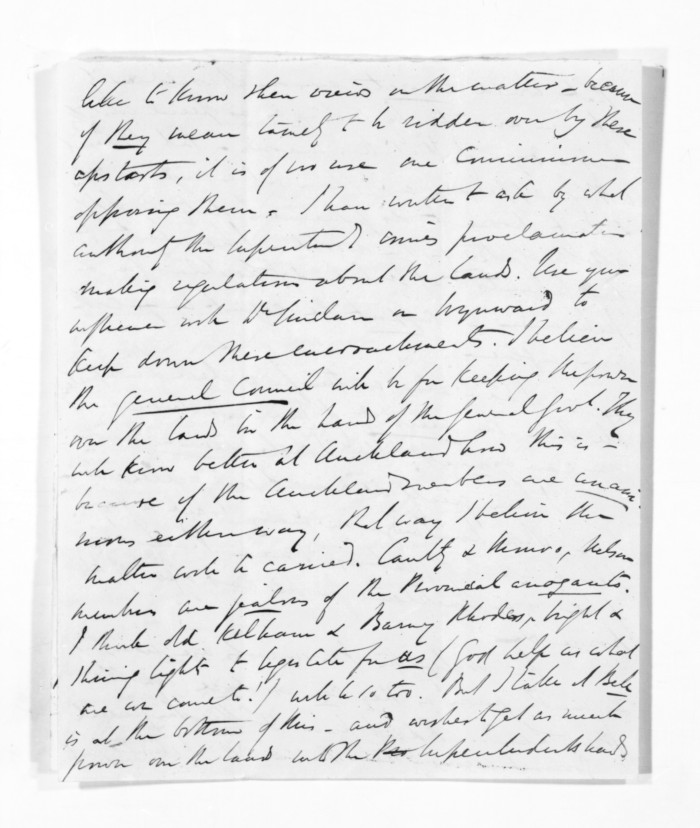 like to know their views on the matter – because
if they mean tamely to be ridden over by these
upstarts, it is of no use one Commissioner
opposing them. I have written to ask by what
authority the Superintendt issues proclamation
making regulations about the lands. Use your
influence with Dr Sinclair or Wynyard to
keep down these encroachments. I believe
the general Council will be for keeping the power
over the lands in the hands of the General Govt. They
will know better at Auckland how this is –
because if the Auckland members are unani-
mous either way, that way I believe the
matter will be carried. Cautley & Monro, Nelson
members are jealous of the Provincial arrogants.
I think old Kelham & Barney Rhodes, bright &
shining lights to legislate for us (God help us what
are we come to!) will be so too. But I take it
is at the bottom of this – and wishes to get as much
power over the land into the Superintendents hands